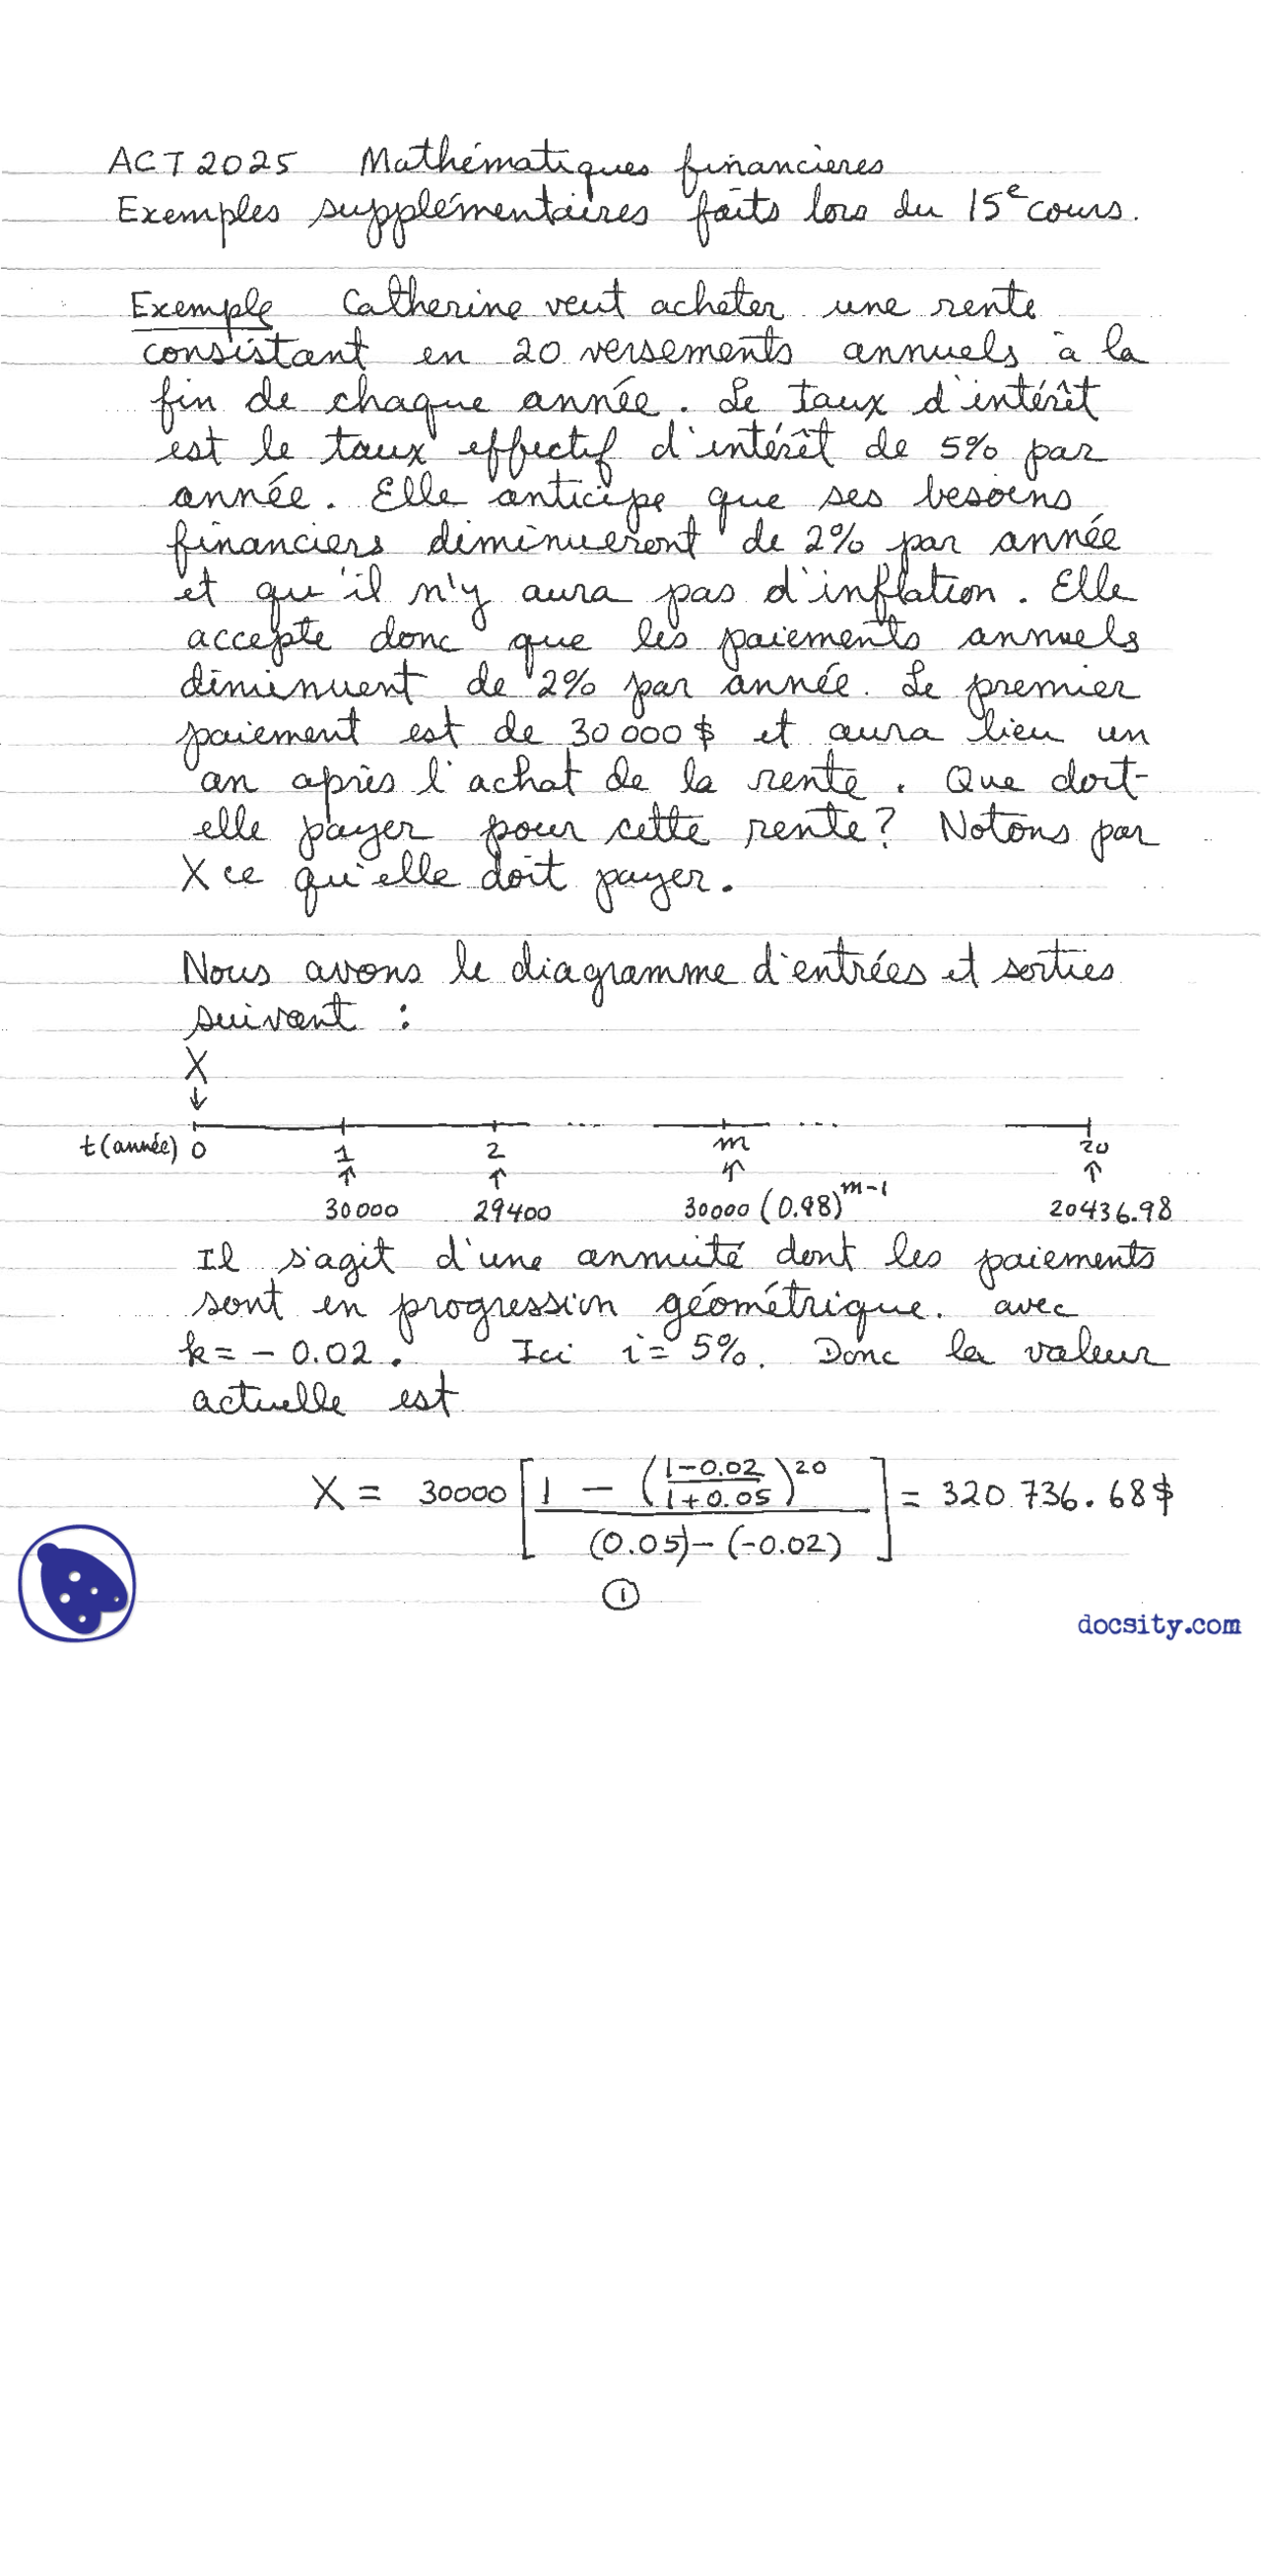 ACT 2025 Mathématiques financières
Exemples supplémentaires faits lors du 15e cours.
Exemple Catherine veut acheter une rente
consistant en 20 versements annuels à la
fin de chaque année. Le taux d'intérêt
est le taux effectif d'intérêt de 5% par
année. Elle anticipe que ses besoins
financiers diminueront de 2% par année
et qu'il n'y aura pas d'inflation. Elle
accepte donc que les paiements annuels
diminuent de 2% par année. Le premier
paiement est de 30 000 $ et aura lieu un
an après l'achat de la rente. Que doit-
elle payer pour cette rente? Notons par
X ce qu'elle doit payer.
Nous avons le diagramme d'entrées et sorties
suivant :
X
↓
t (année) 0 1 2 ... m ... 20
↑ ↑ ↑ ↑
30000 29400 30000 (0.98)^{m-1} 20436.98
Il s'agit d'une annuité dont les paiements
sont en progression géométrique. avec
k = - 0.02. Ici i = 5%. Donc la valeur
actuelle est
X = 30000 [ (1 - ((1-0.02)/(1+0.05))^20) / ((0.05) - (-0.02)) ] = 320 736.68 $
①
docsity.com